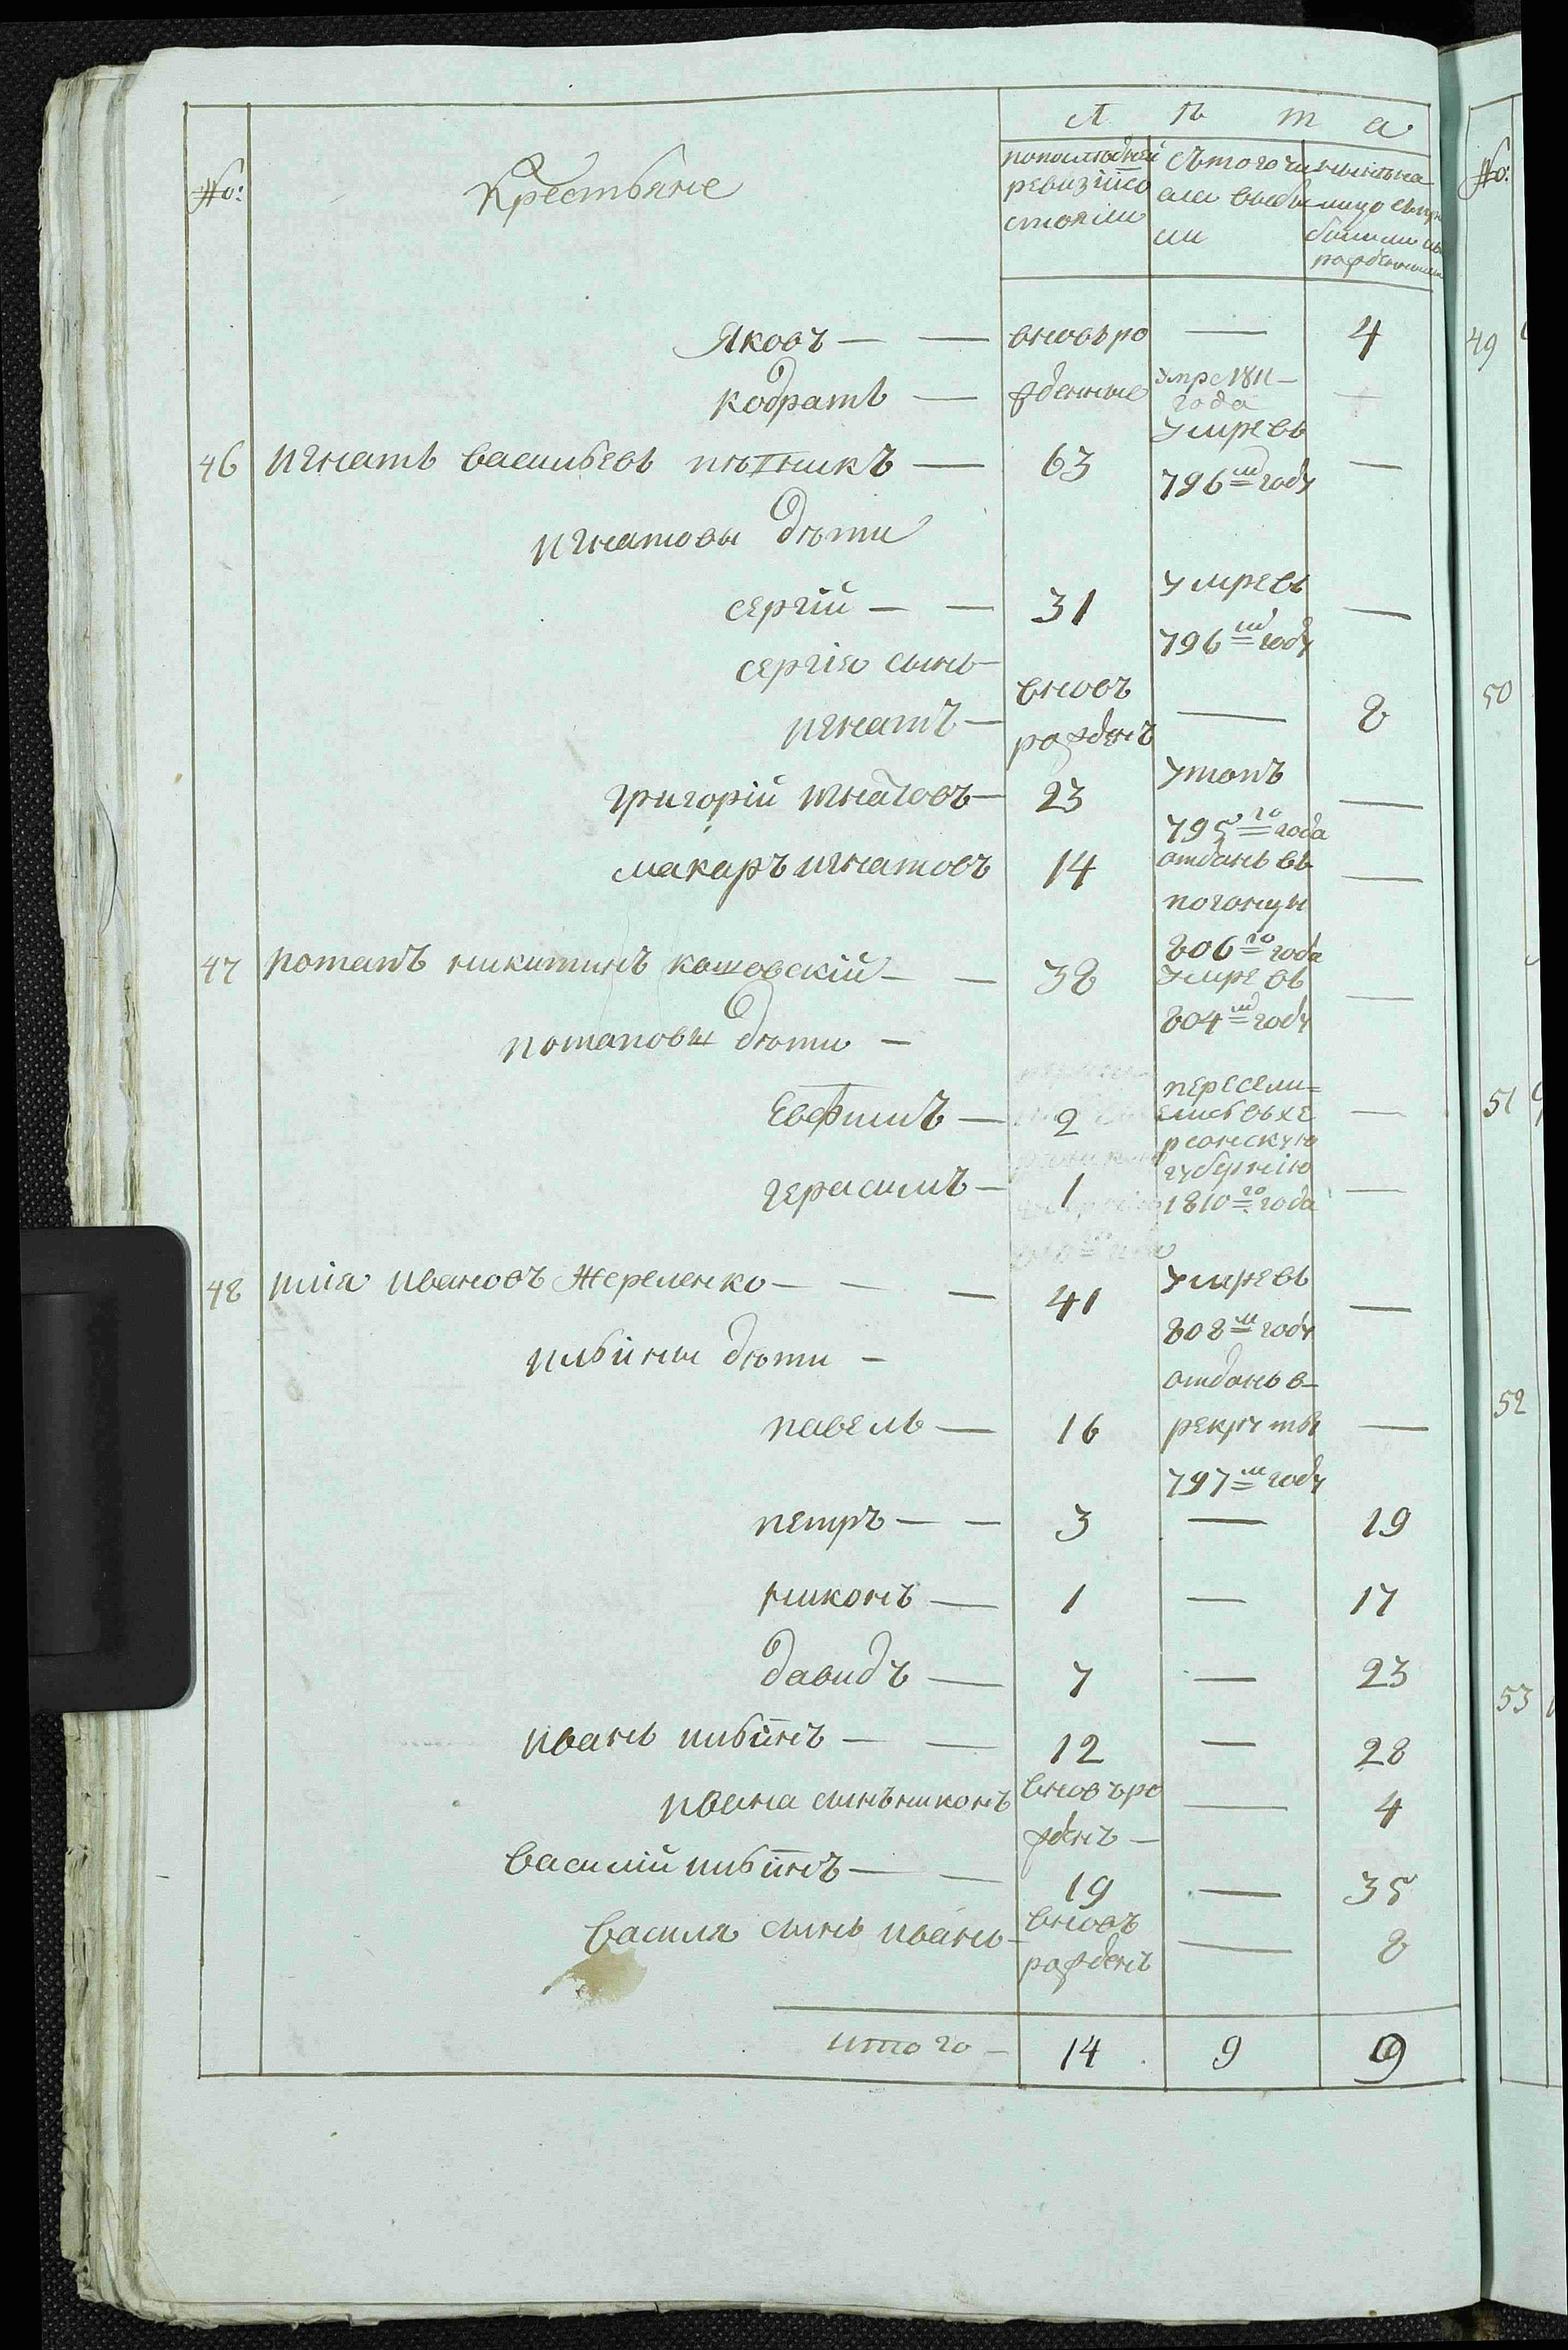 Л ѣ т а
№: Крестьяне
попослѣдней ревизіи состояли
съ того числа выбыли
нынѣ на лицо съ прибылыми и рожденными
Яковъ — — вновь ро — 4
Кодратъ — жденные умре 1811 года —
46 Игнатъ Васильевъ Пѣтникъ — 63 умре въ 796м году —
Игнатовы дѣти
Сергій — — 31 умре въ 796м году —
Сергія сынъ —
Игнатъ — вновь рожденъ — 8
Григорій Игнатовъ — 23 утопъ 795го года —
Макаръ Игнатовъ 14 отданъ въ погонцы 806го года —
47 Потапъ Никитинъ Кошовскій — — 38 умре въ 804м году —
Потаповы дѣти —
Евфимъ — 2 переселились въ хе —
рсонскую
Герасимъ — 1 губернію 1810го года —
48 Илія Ивановъ Жереленко — — — 41 умре въ 808м году —
Ильины дѣти —
Павелъ — 16 отданъ в рекруты 797м году —
Петръ — — 3 — 19
Никонъ — 1 — 17
Давидъ — 7 — 23
Иванъ Ильинъ — — 12 — 28
Ивана сынъ Никонъ вновь рожденъ — — 4
Василій Ильинъ — — 19 — 35
Василя сынъ Иванъ — вновь рожденъ — 8
Итого — 14 9 9
№:
49
50
51
52
53